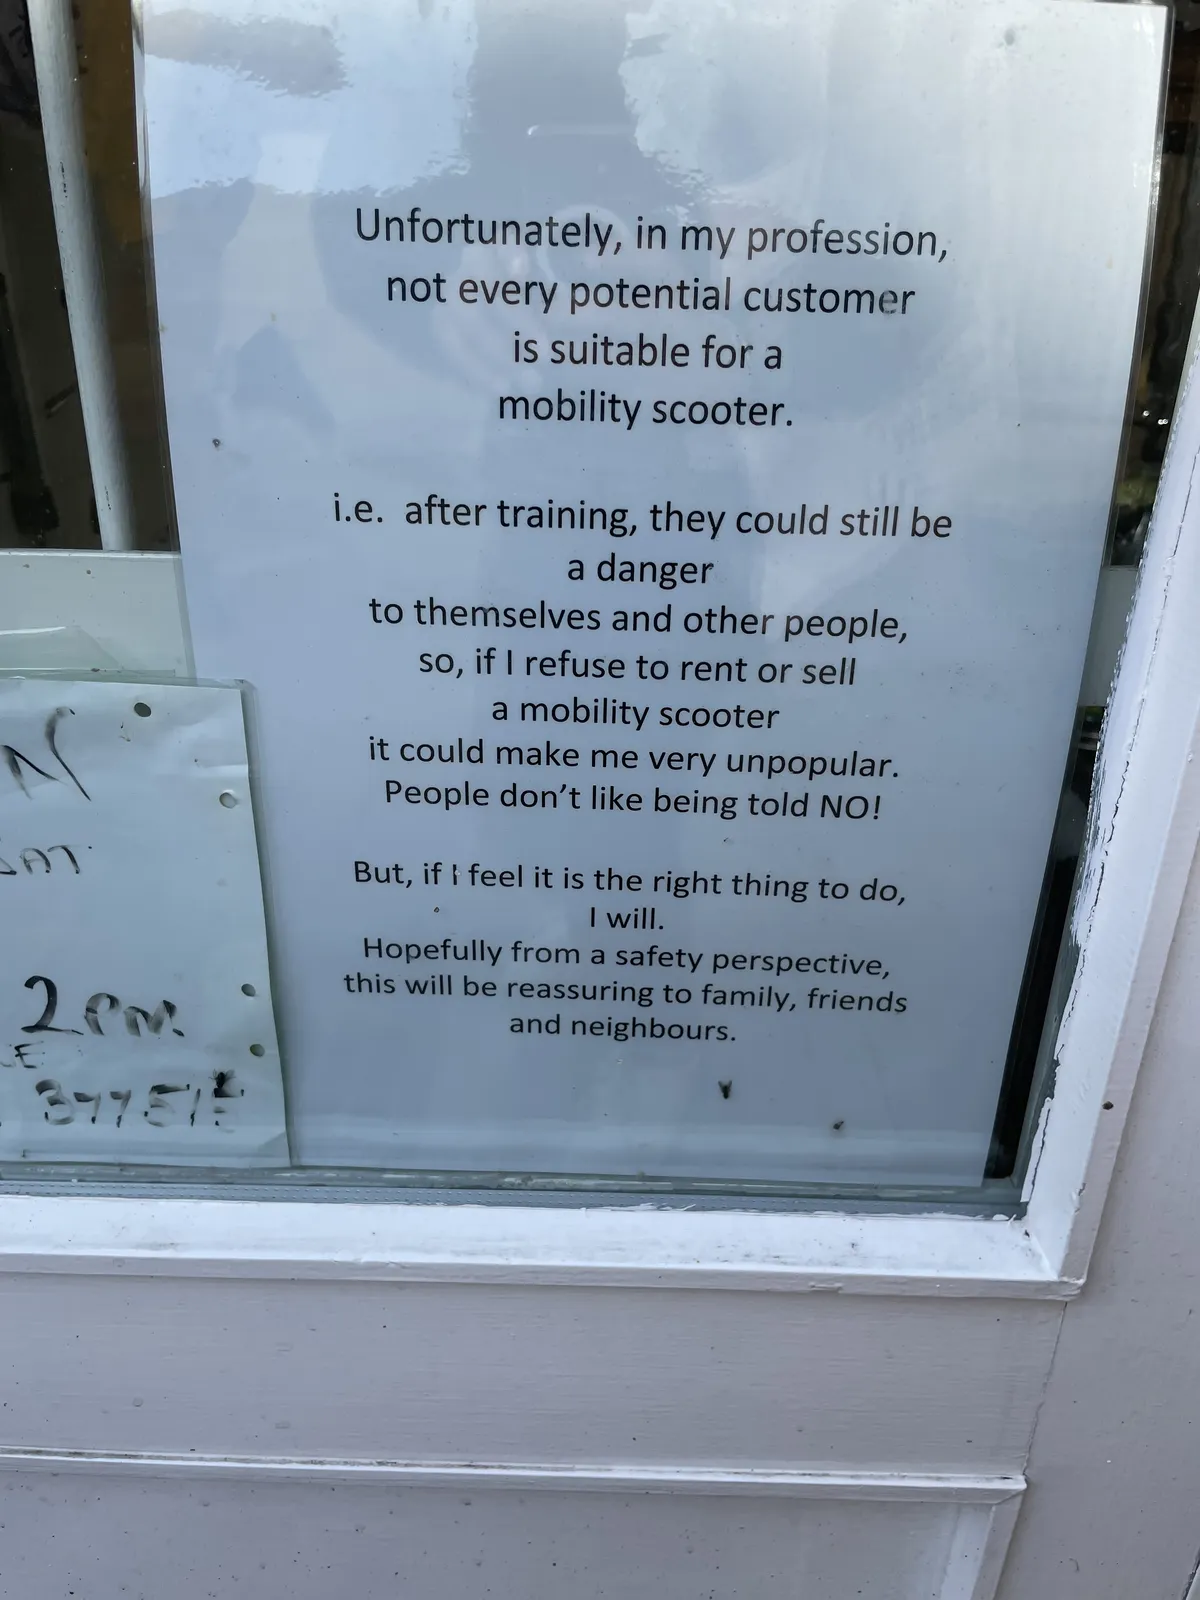 Unfortunately, in my profession,
not every potential customer
is suitable for a
mobility scooter.
i.e. after training, they could still be
a danger
to themselves and other people,
so, if I refuse to rent or sell
a mobility scooter
it could make me very unpopular.
People don't like being told NO!
But, if I feel it is the right thing to do,
I will.
Hopefully from a safety perspective,
this will be reassuring to family, friends
and neighbours.
N
SAT
2PM